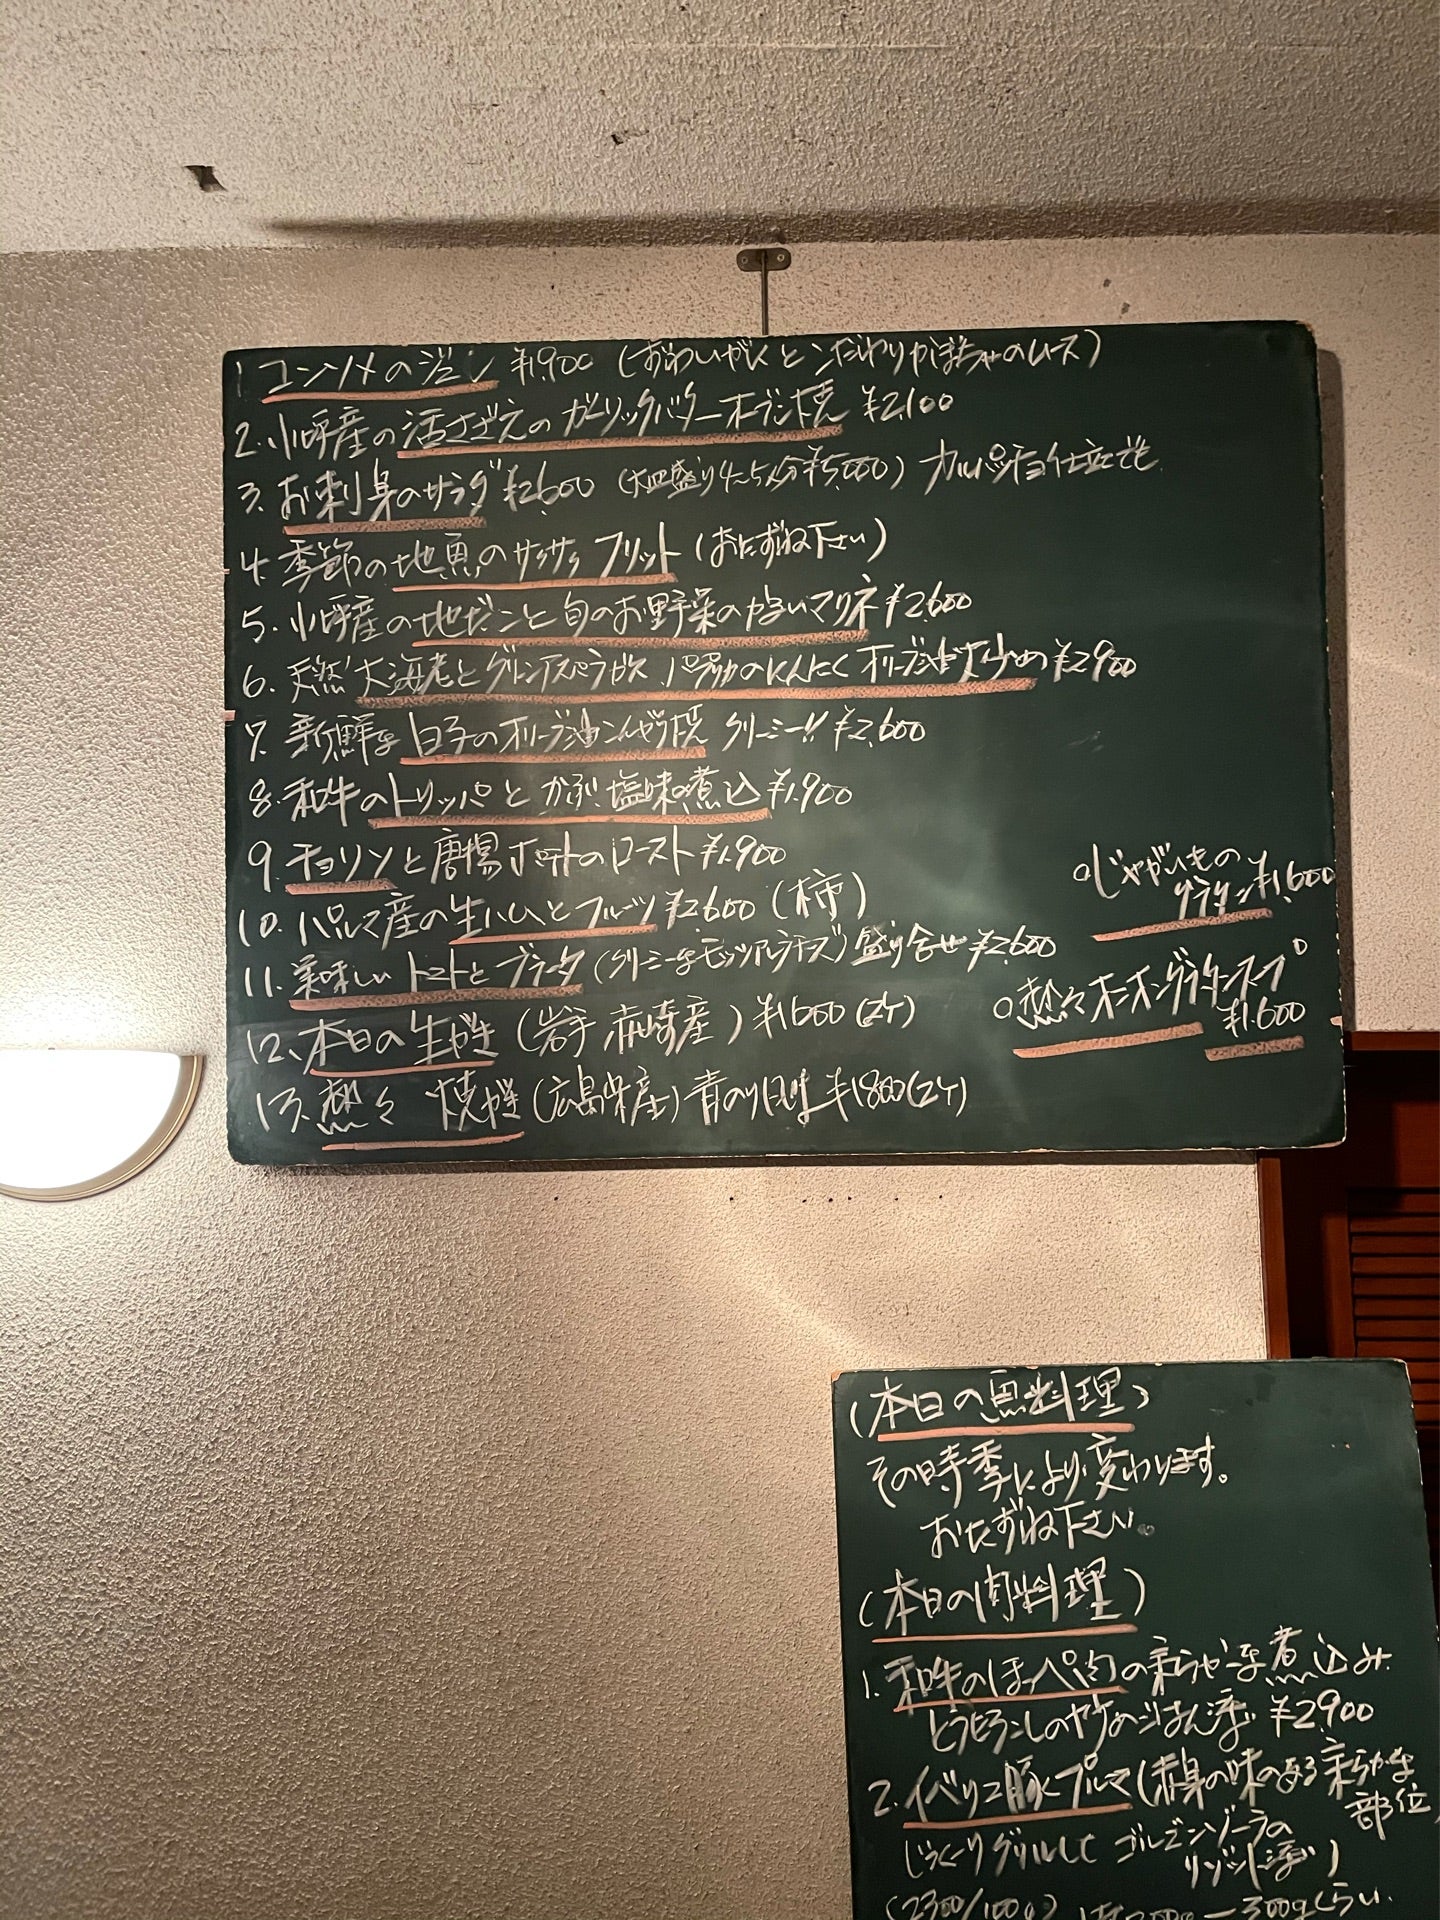 1 コンソメのジュレ ¥1,900 (ずわいがにとこだわりかぼちゃのムース)
2. 小坪産の活さざえのガーリックバターオーブン焼 ¥2,100
3. お刺身のサラダ ¥2,600 (大皿盛り4~5人分¥5,000) カルパッチョ仕立でも
4. 季節の地魚のサクサクフリット (おたずね下さい)
5. 小坪産の地だこと旬のお野菜の マリネ ¥2,600
6. 天然大海老とグリーンアスパラガス、パプリカのにんにくオリーブ油 ¥2900
7. 新鮮な白子のオリーブ油こんがり焼 クリーミー!! ¥2,600
8. 和牛のトリッパとかぶ、塩味の煮込 ¥1,900
9. チョリソと唐揚ポテトのロースト ¥1,900
10. パルマ産の生ハムとフルーツ ¥2,600 (柿)
11. 美味しいトマトとブラータ (クリーミーなモッツァレラチーズ) 盛り合せ ¥2,600
12、本日の生がき (岩手 赤崎産) ¥1600 (2ケ)
13. 熱々 焼がき (広島県産) 青のり風味 ¥1800 (2ケ)
○じゃがいもの
グラタン ¥1,600
○熱々オニオングラタンスープ
¥1,600
(本日の魚料理)
その時季により、変わります。
おたずね下さい。
(本日の肉料理)
1. 和牛のほっぺ肉の柔らかな煮込み
とうもろこしの ごはん添え ¥2900
2. イベリコ豚プルマ (赤身の味のある柔らかな
部位
じっくりグリルして ゴルゴンゾーラの
リゾット添え)
(2300/100g) 300gくらい